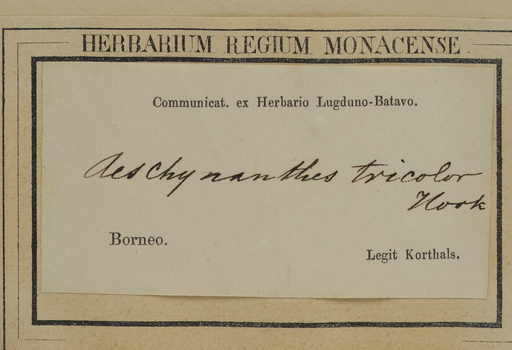 HERBARIUM REGIUM MONACENSE.
Communicat. ex Herbario Lugduno-Batavo.
Aeschynanthes tricolor
Hook
Borneo.
Legit Korthals.